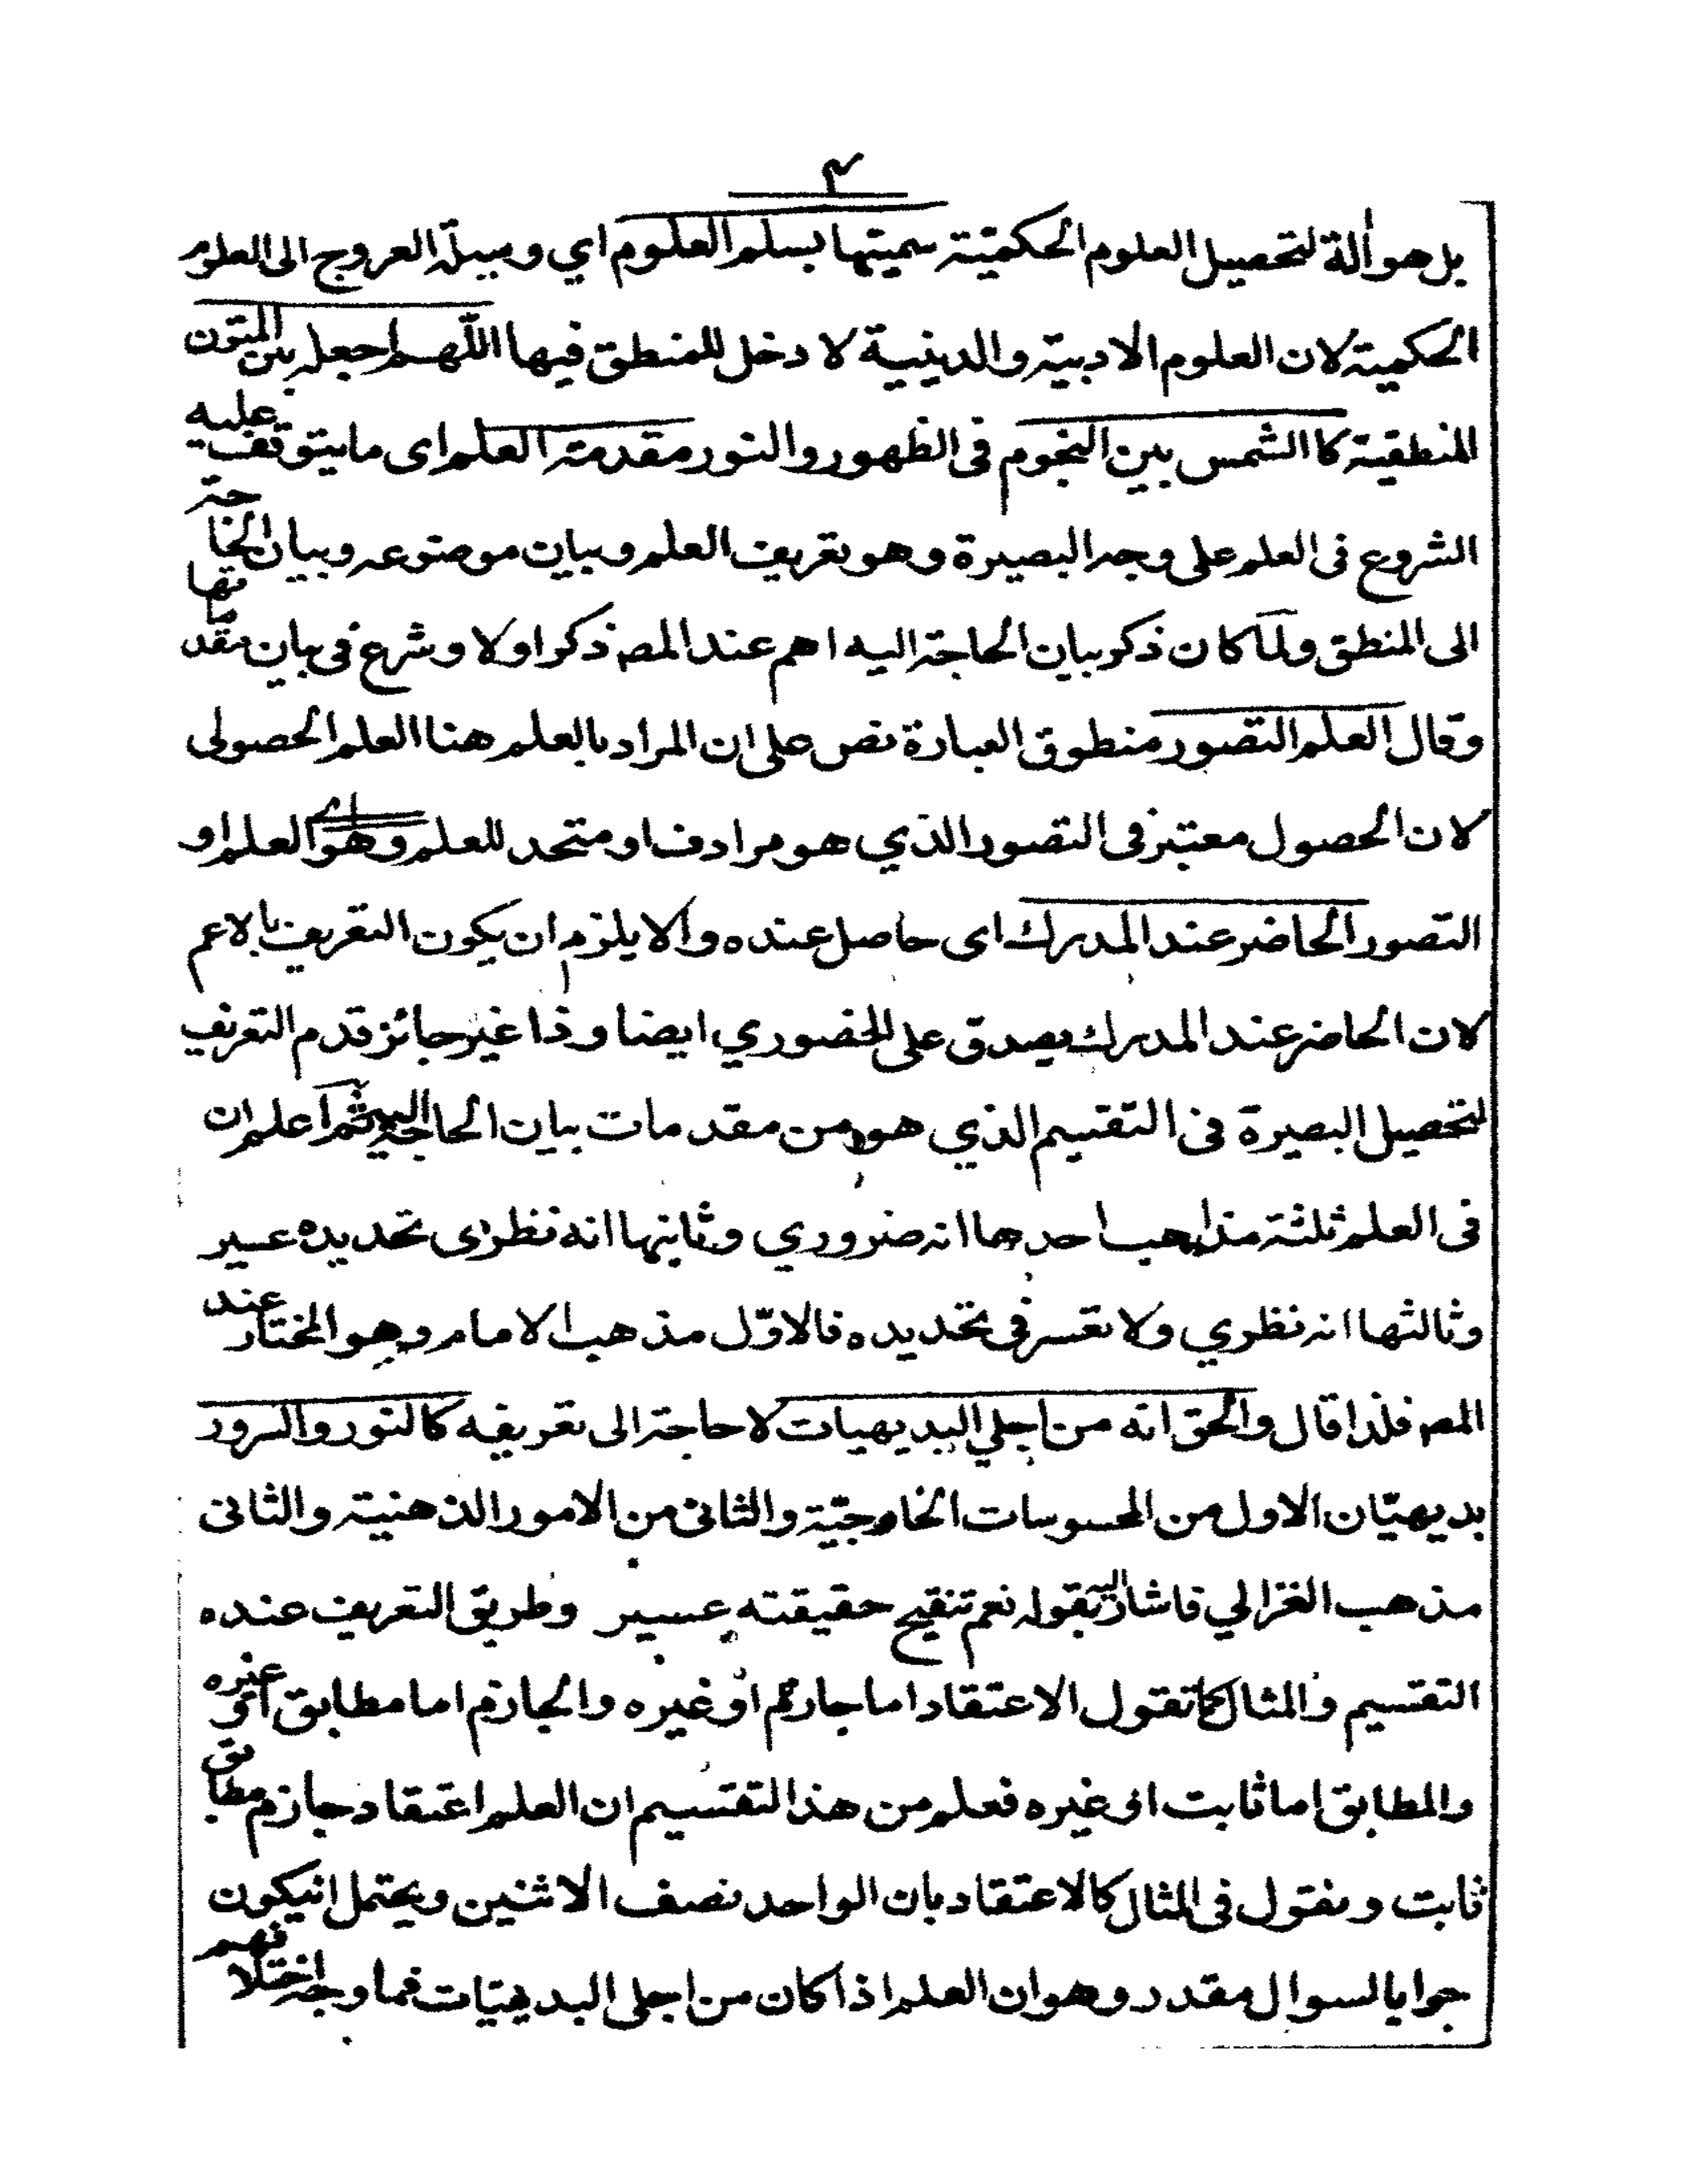 ۴
بل هو اٰلة لتحصيل العلوم الحكميّة سميتها بسلم العلوم اي وسيلة العروج الى العلوم
الحكمية لان العلوم الادبية والدينية لا دخل للمنطق فيها اللّٰهم اجعله بين المتون
المنطقية كا الشمس بين النجوم فى الظهور والنور مقدمة العلم اى ما يتوقف عليه
الشروع فى العلم على وجه البصيرة وهو تعريف العلم وبيان موضوعه وبيان الحاجة
الى المنطق ولمّا كان ذكر بيان الحاجة اليه اهم عند المصـ ذكر اولا وشرع فى بيان مقدماتها
وقال العلم التصور منطوق العبارة نص على ان المراد بالعلم هنا العلم الحصولى
لان الحصول معتبر فى التصور الذي هو مرادف او متحد للعلم وهو اے العلم او
التصور الحاضر عند المدرك اى حاصل عنده والا يلزم ان يكون التعريف بالاعم
لان الحاضر عند المدرك يصدق على الحضوري ايضا وذا غير جائز قدم التعريف
لتحصيل البصيرة فى التقسيم الذي هو من مقدمات بيان الحاجة اليه ثم اعلم ان
فى العلم ثلثة مذاهب احدها انه ضروري وثانيها انه نظرى تحديده عسير
وثالثها انه نظري ولا تعسر فى تحديده فالاوّل مذهب الامام وهو المختار عند
المصـ فلذا قال والحق انه من اجلي البديهيات لا حاجة الى تعريفه كالنور والسرور
بديهيّان الاول من المحسوسات الخارجيّة والثانى من الامور الذهنية والثانى
مذهب الغزالي فاشار اليه بقوله نعم تنقيح حقيقته عسير وطريق التعريف عنده
التقسيم والمثال كما تقول الاعتقاد اما جازم او غيره والجازم اما مطابق او غيره
والمطابق اما ثابت او غيره فعلم من هذا التقسيم ان العلم اعتقاد جازم مطابق
ثابت ونقول فى المثال كالاعتقاد بان الواحد نصف الاثنين ويحتمل انيكون
جوابا لسوال مقدر وهو ان العلم اذا كان من اجلى البديهيّات فما وجه اختلافهم